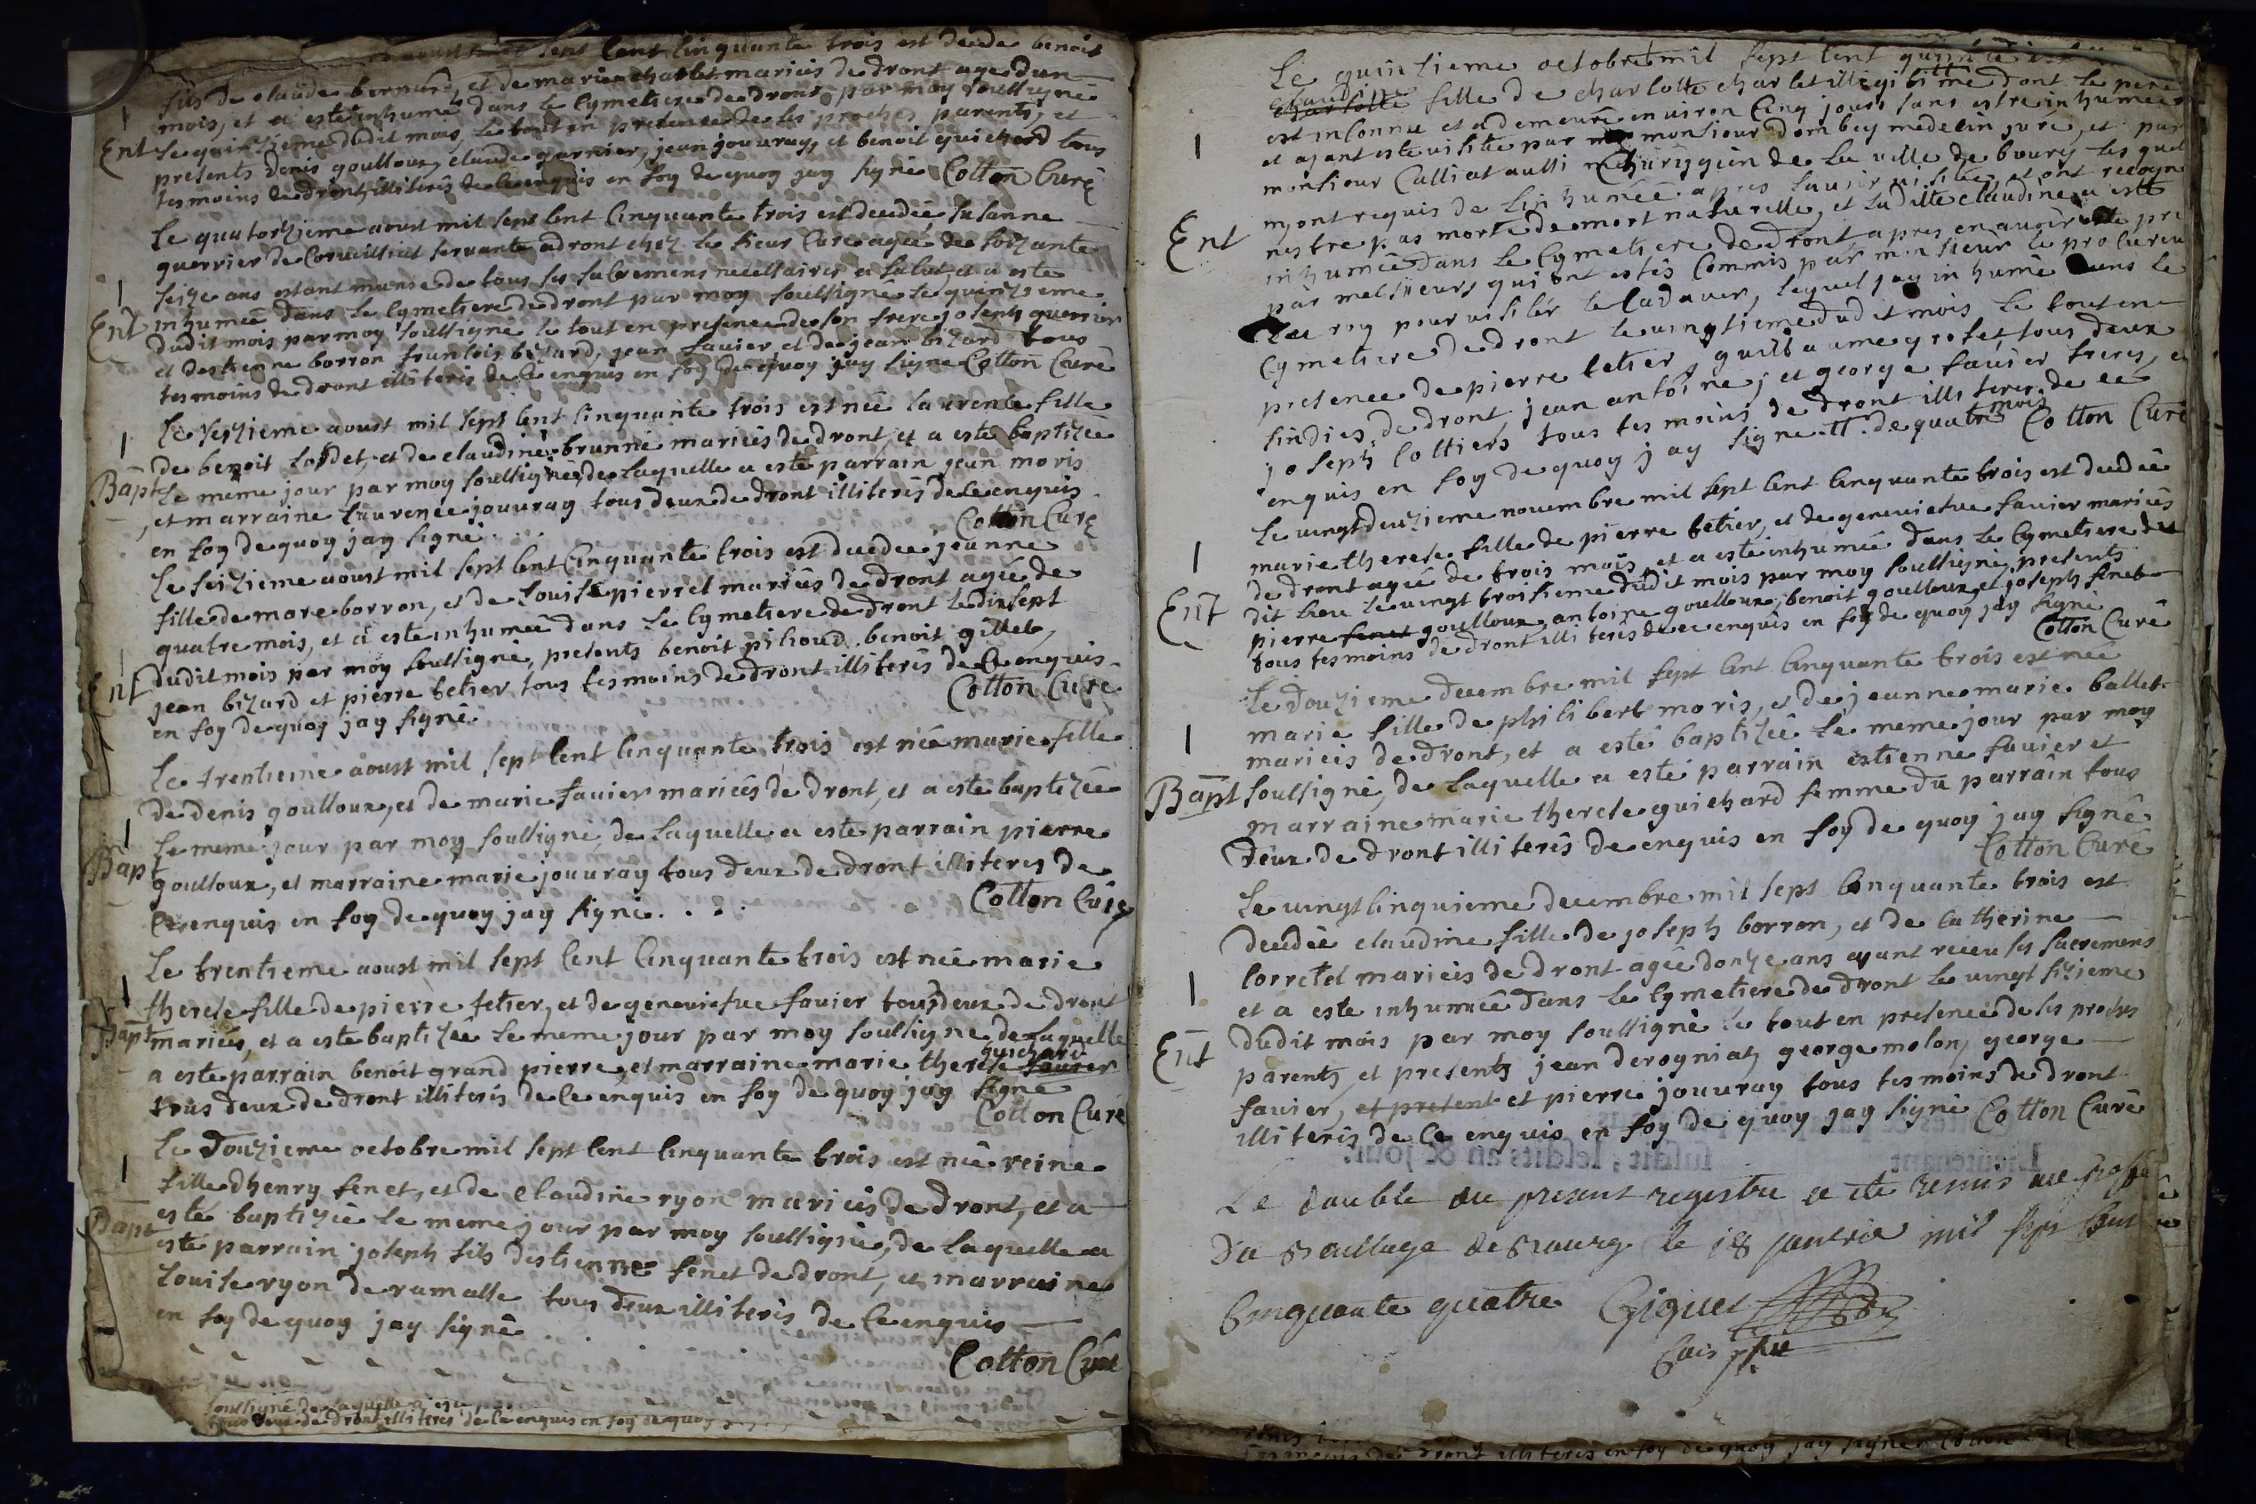 aoust mil sept cent cinquante trois est decede benoit
fils de claude bernard, et de marie charlet mariés de dront agé dun
mois, et a esté inhumé dans le cymetiere de dront par moy soussigné
Ent le quinzieme dudit mois le tout en presence de ses proches parents, et
presents denis goulloux, claude garnier, jean jouuray, et benoit guichard tous
tesmoins de dront illiterés de ce enquis en foy de quoy jay signé Cotton Curé
Le quatorzieme aoust mil sept cent cinquante trois est decedée susanne
guerrier de Corueissiat seruante a dront chez le sieur Curé agée de soizante
seize ans estant munie de tous ses sacremens necessaires a salut, et a esté
Ent inhumée dans le cymetiere de dront par moy soussigné le quinzieme
dudit mois par moy soussigné le tout en presence de son frere joseph guerrier
et destienne borron francois bizard, jean fauier et de jean bizard tous
tesmoins de dront illiterés de ce enquis en foy de quoy jay signé Cotton Curé
Le seizieme aoust mil sept cent cinquante trois est née laurence fille
de benoit loddet, et de claudine brunne mariés de dront, et a esté baptizée
Bapt le meme jour par moy soussigné, de laquelle a esté parrain jean moris
, et marraine laurence jouuray tous deux de dront illiterés de ce enquis
en foy de quoy jay signé. Cotton Curé
Le seizieme aoust mil sept cent cinquante trois est decedée jeanne
fille de marc borron, et de louise pierret mariés de dront agée de
quatre mois, et a esté inhumée dans le cymetiere de dront le dixsept
Ent dudit mois par moy soussigné, presents benoit pihoud benoit gillet,
jean bizard et pierre fetier tous tesmoins de dront illiterés de ce enquis
en foy de quoy jay signé Cotton Curé
Le trentieme aoust mil sept cent cinquante trois est née marie fille
de denis goulloux, et de marie fauier mariés de dront, et a esté baptizée
Bapt le meme jour par moy soussigné, de laquelle a esté parrain pierre
goulloux, et marraine marie jouuray tous deux de dront illiterés de
ce enquis en foy de quoy jay signé. Cotton Curé
Le trentieme aoust mil sept cent cinquante trois est née marie
therese fille de pierre fetier, et de geneuiefue fauier tous deux de dront
Bapt mariés, et a esté baptizée le meme jour par moy soussigné de laquelle
a esté parrain benoit grand pierre, et marraine marie therese fauier guichard
tous deux de dront illiterés de ce enquis en foy de quoy jay signé
Cotton Curé
Le douzieme octobre mil sept cent cinquante trois est née reine
fille dhenry fenet, et de claudine ryon mariés de dront, et a
Bapt esté baptizée le meme jour par moy soussigné, de laquelle a
esté parrain joseph fils destienne fenet de dront, et marraine
louise ryon de ramasse tous deux illiterés de ce enquis
en foy de quoy jay signé
Cotton Curé
soussigné de laquelle a esté
tous deux de dront illiterés de ce enquis en foy de quoy
Le quinzieme octobre mil sept cent
charlotte claudine fille de charlotte charlet illegibitime dont le pere
est inconnu et a demeuré enuiron cinq jours sans estre inhumée
et ayant esté uisitée par monsieur dombey medecin juré, et par
monsieur Calliat aussi Chirurgien de la uille de bourg les quel
mont requis de linhumée apres lauoir uisitée, et ont recogne
Ent nestre pas morte de mort naturelle, et laditte claudine a esté
inhumée dans le cymetiere de dront apres en auoir esté pre
par messieurs qui ont estés Commis par monsieur le procureur
du roy pour uisiter le cadauer, lequel jay inhumé dans le
cymetiere de dront le uingtieme dudit mois le tout en
presence de pierre fetier, guillaume grofet, tous deux
sindics de dront jean antoine, et george fauier freres, et
joseph lottiers tous tesmoins de dront illiterés de ce
enquis en foy de quoy jay signé. de quatre mois Cotton Curé
Le uingtdeuzieme nouembre mil sept cent cinquante trois est decedée
marie therese fille de pierre fetier, et de geneuiefue fauier mariés
de dront agée de trois mois, et a esté inhumée dans le cymetiere du
Ent dit lieu le uingt troisieme dudit mois par moy soussigné, presents
pierre fenet goulloux, antoine goulloux, benoit goulloux, et joseph fenet
tous tesmoins de dront illiterés de ce enquis en foy de quoy jay signé
Cotton Curé
Le douzieme decembre mil sept cent cinquante trois est née
marie fille de philibert moris, et de jeanne marie ballet
mariés de dront, et a esté baptizée le meme jour par moy
Bapt soussigné, de laquelle a esté parrain estienne fauier et
marraine marie therese guichard femme du parrain tous
deux de dront illiterés de enquis en foy de quoy jay signé
Cotton Curé
Le uingtcinquieme decembre mil sept cinquante trois est
decedée claudine fille de joseph borron, et de catherine
corretel mariés de dront agée donze ans ayant receu ses sacremens
et a esté inhumée dans le cymetiere de dront le uingt sizieme
Ent dudit mois par moy soussigné le tout en presence de ses proches
parents, et presents jean derogniat, george molon, george
fauier, et present et pierre jouuray tous tesmoins de dront
illiterés de ce enquis en foy de quoy jay signé Cotton Curé
Le double du present registre a été remis au greffe
du Bailliage de Bourg le 18 janvier mil sept cent
Cinquante quatre Giguet
tesmoins de dront illiterés en foy de quoy jay signé Cotton